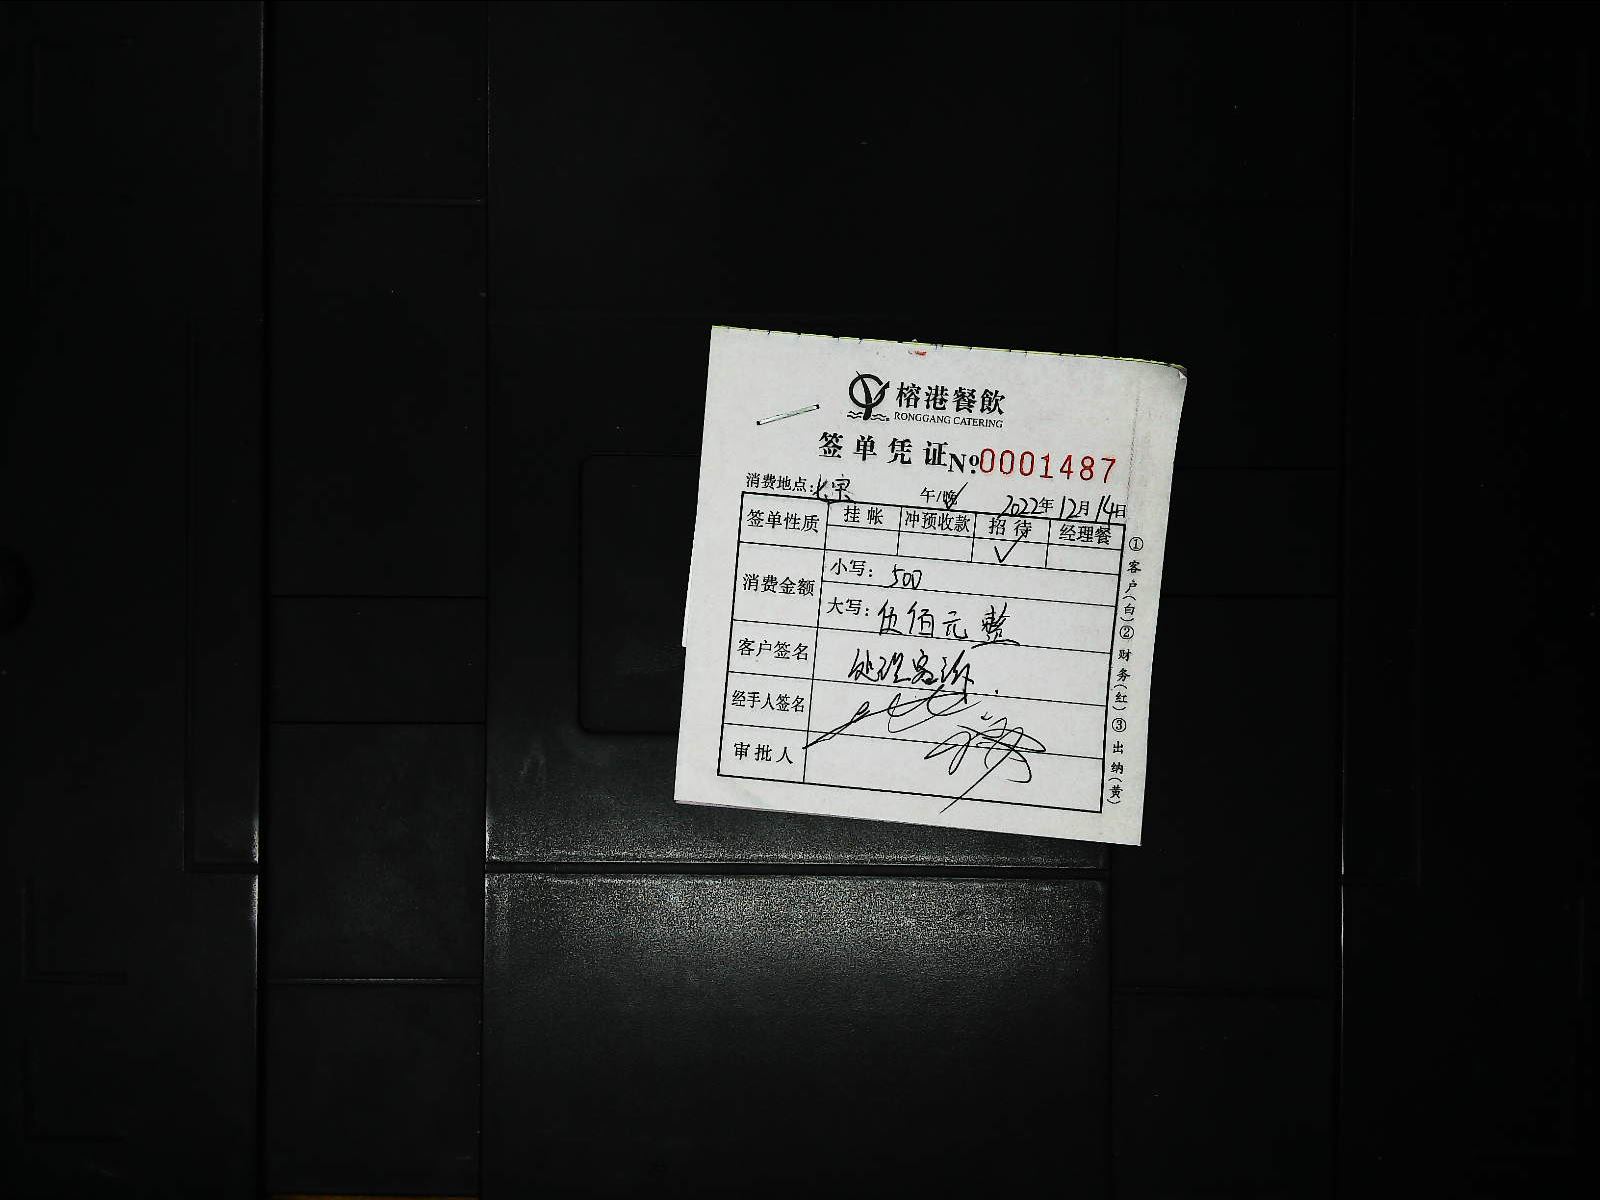 榕港餐飲
RONGGANG CATERING
签单凭证 №0001487
消费地点: 午/晚 2022年12月14日
签单性质 挂帐 冲预收款 招待 经理餐
✓
消费金额 小写: 500
大写: 伍佰元整
客户签名 处理客诉.
经手人签名
审批人
①客户(白)②财务(红)③出纳(黄)